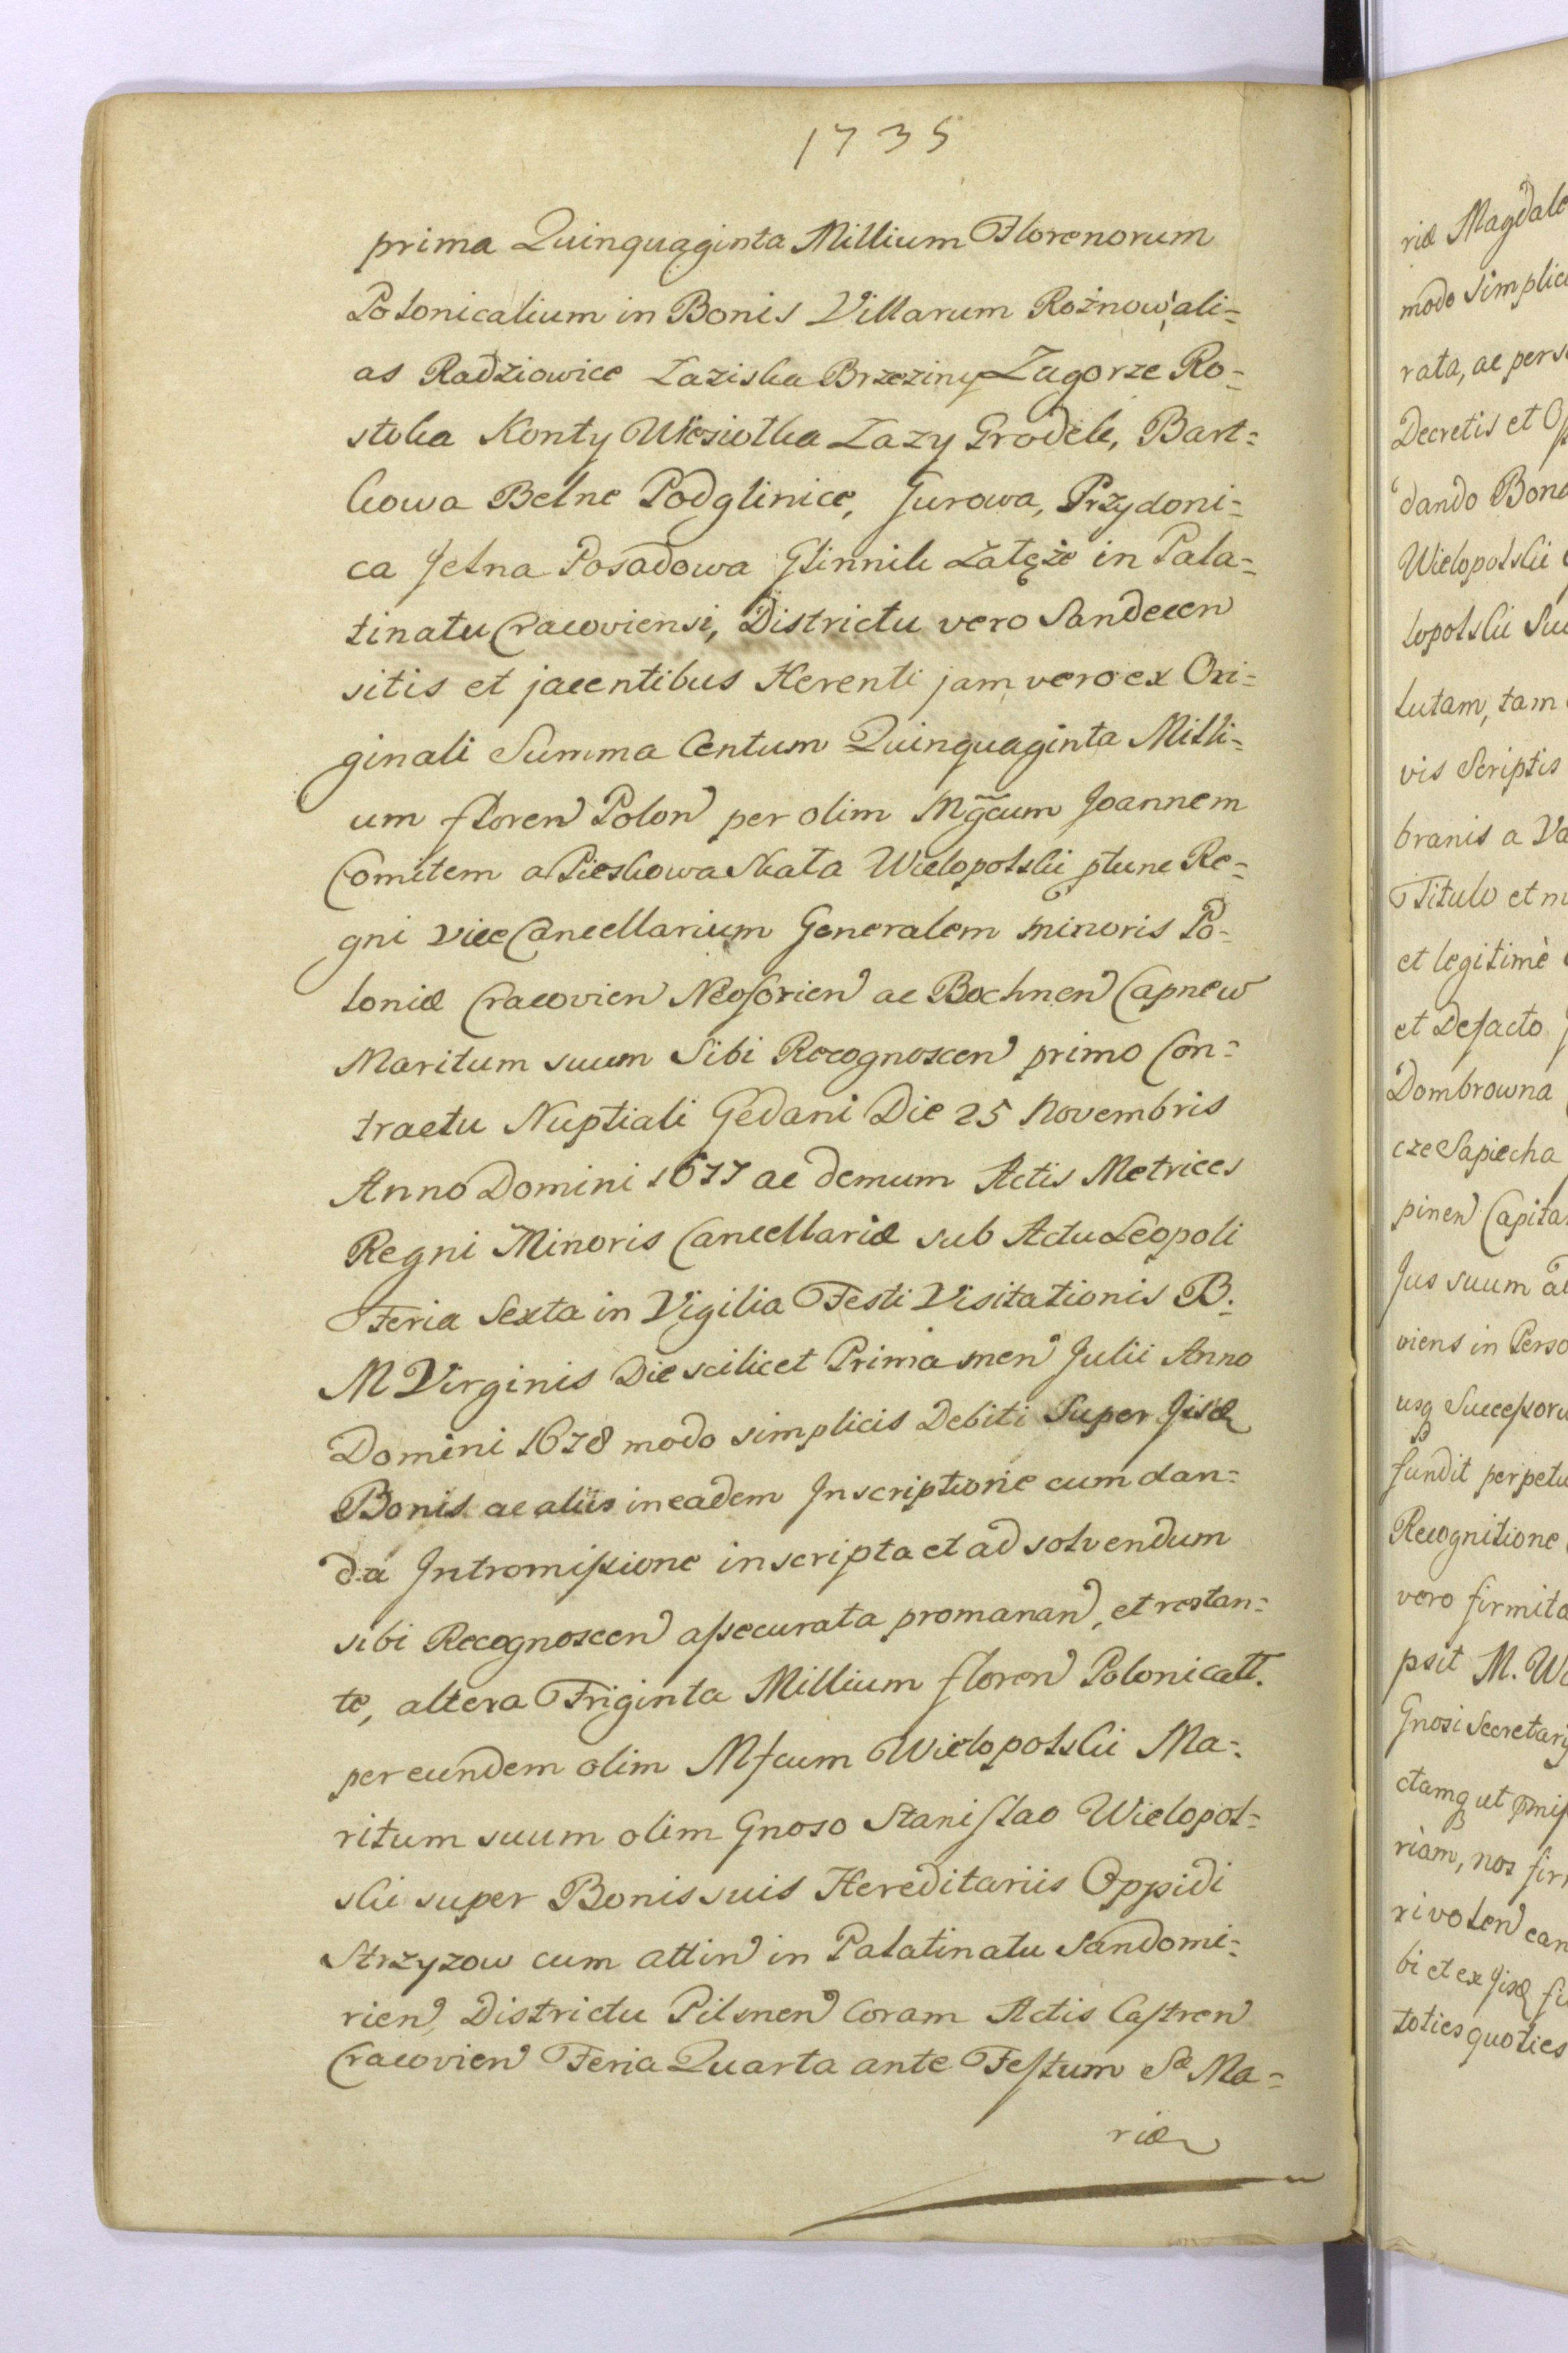 1735
prima Quinquaginta Millium Florenorum
Polonicalium in Bonis Villarum Rożnow ali=
as Radziowice Łaziska Brzeziny Zagorze Ro=
stoka Konty Wiesiołka Łazy Grodek, Bart=
kowa Belne Podglinice, Jurowa, Przydoni=
ca Jelna Posadowa Glinnik Załęże in Pala=
tinatu Cracoviensi, Districtu vero Sandecen
sitis et jacentibus Herenti jam vero ex Ori=
ginali Summa Centum Quinquaginta Milli=
um floren Polon per olim Mgcum Joannem
Comitem a Pieskowa Skała Wielopolski ptunc Re=
gni ViceCancellarium Generalem minoris Po=
loniæ Cracovien Neoforien ac Bochnen Capneu
Maritum suum Sibi Recognoscen primo Con=
tractu Nuptiali Gedani Die 25 Novembris
Anno Domini 1677 ac demum Actis Metrices
Regni Minoris Cancellariæ sub Actu Leopoli
Feria Sexta in Vigilia Festi Visitationis B.
M Virginis Die scilicet Prima men Julii Anno
Domini 1678 modo simplicis Debiti Super Jisd
Bonis ac aliis in eadem Inscriptione cum dan=
da Intromissione inscripta et ad solvendum
sibi Recognoscen assecurata promanan, et restan=
te, altera Triginta Millium floren Polonicall.
per eundem olim Mfcum Wielopolski Ma=
ritum suum olim Gnoso Stanislao Wielopol=
ski super Bonis suis Hereditariis Oppidi
Strzyzow cum attin in Palatinatu Sandomi=
rien, Districtu Pilsnen Coram Actis Castren
Cracovien Feria Quarta ante Festum Sæ Ma=
riæ
riæ Magdale
modo simplic
rata, ac pers
Decretis et
dando Bon
Wielopolski
lopolski Su
lutam, tam
vis Scriptis
branis a Va
Titulo et
et legitimè
et Defacto
Dombrowna
cze Sapiecha
pinen Capita
Jus suum
viens in Perso
usq Successor
fundit perpetu
Recognitione
vero firmita
psit M. W
Gnosi Secretar
ctamq ut
riam, nos fir
ri volen ean
bi et ex Jisd fi
toties quoties